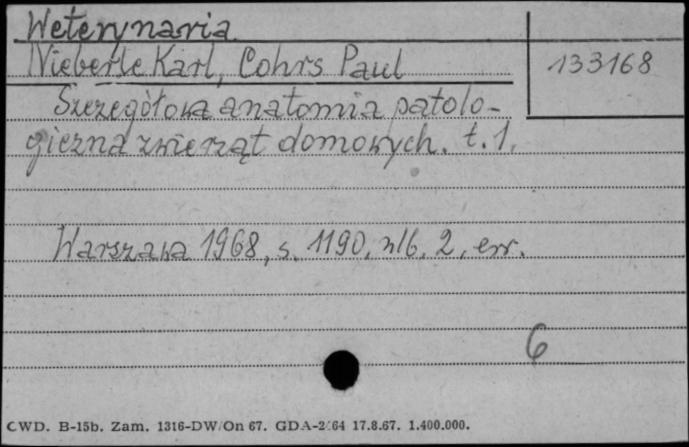 Weterynaria
Nieberle Karl, Cohrs Paul
133168
Szczegółowa anatomia patolo-
giczna zwierząt domowych. t. 1.
Warszawa 1968, s. 1190, nlb. 2, err.
6
CWD. B-15b. Zam. 1316-DW/On 67. GDA-2/64 17.8.67. 1.400.000.